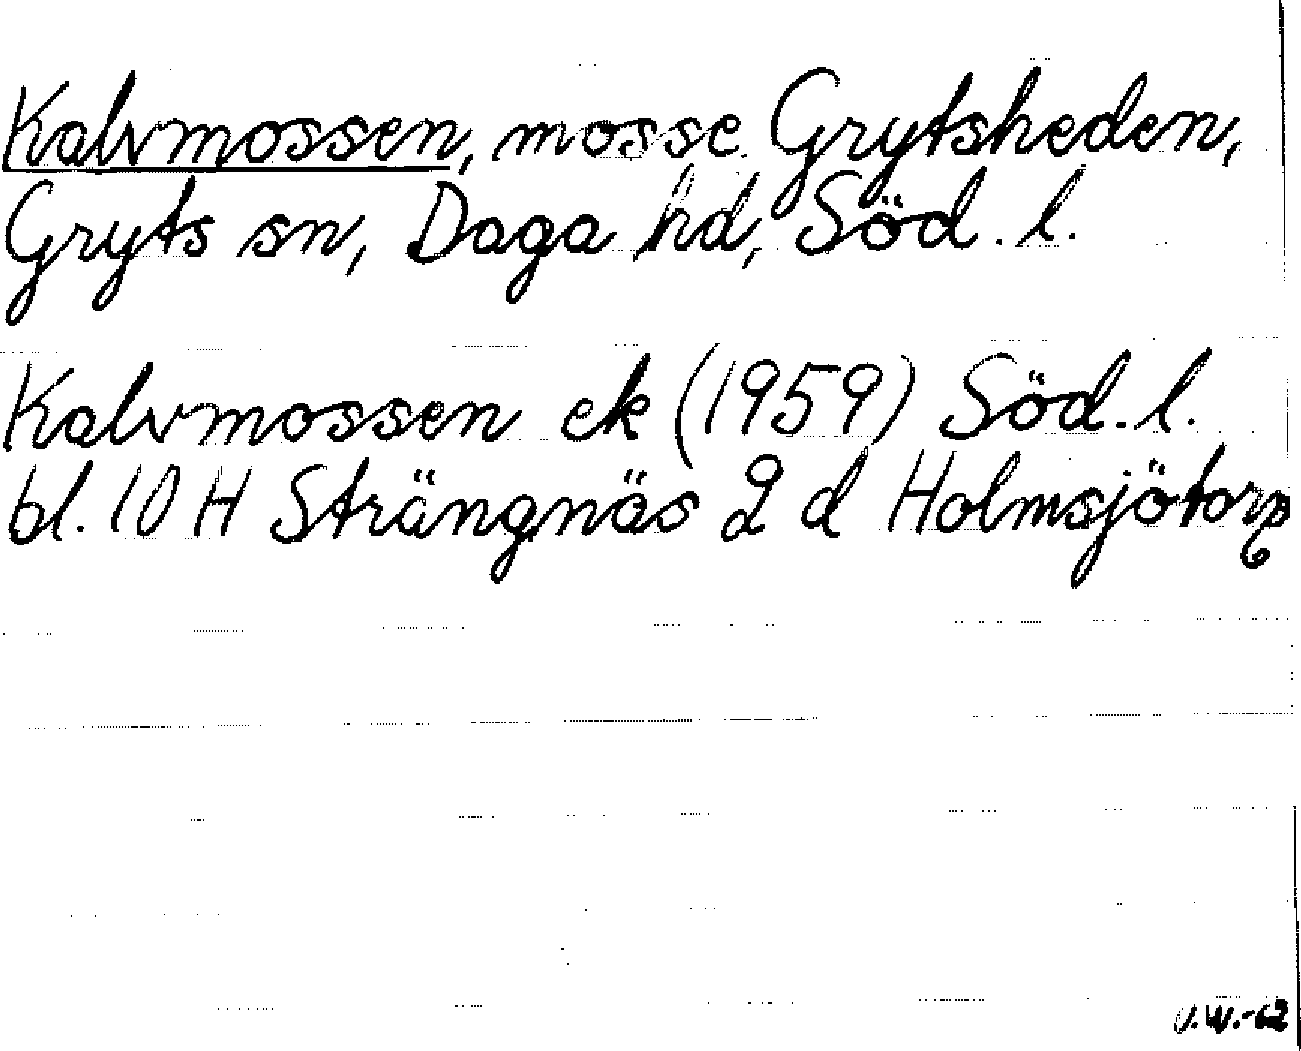 Kalvmossen, mosse Grytsheden,
Gryts sn, Daga hd, Söd. l.
Kalvmossen ek (1959) Söd. l.
bl. 10 H Strängnäs 2 d Holmsjötorp
U.W.-62